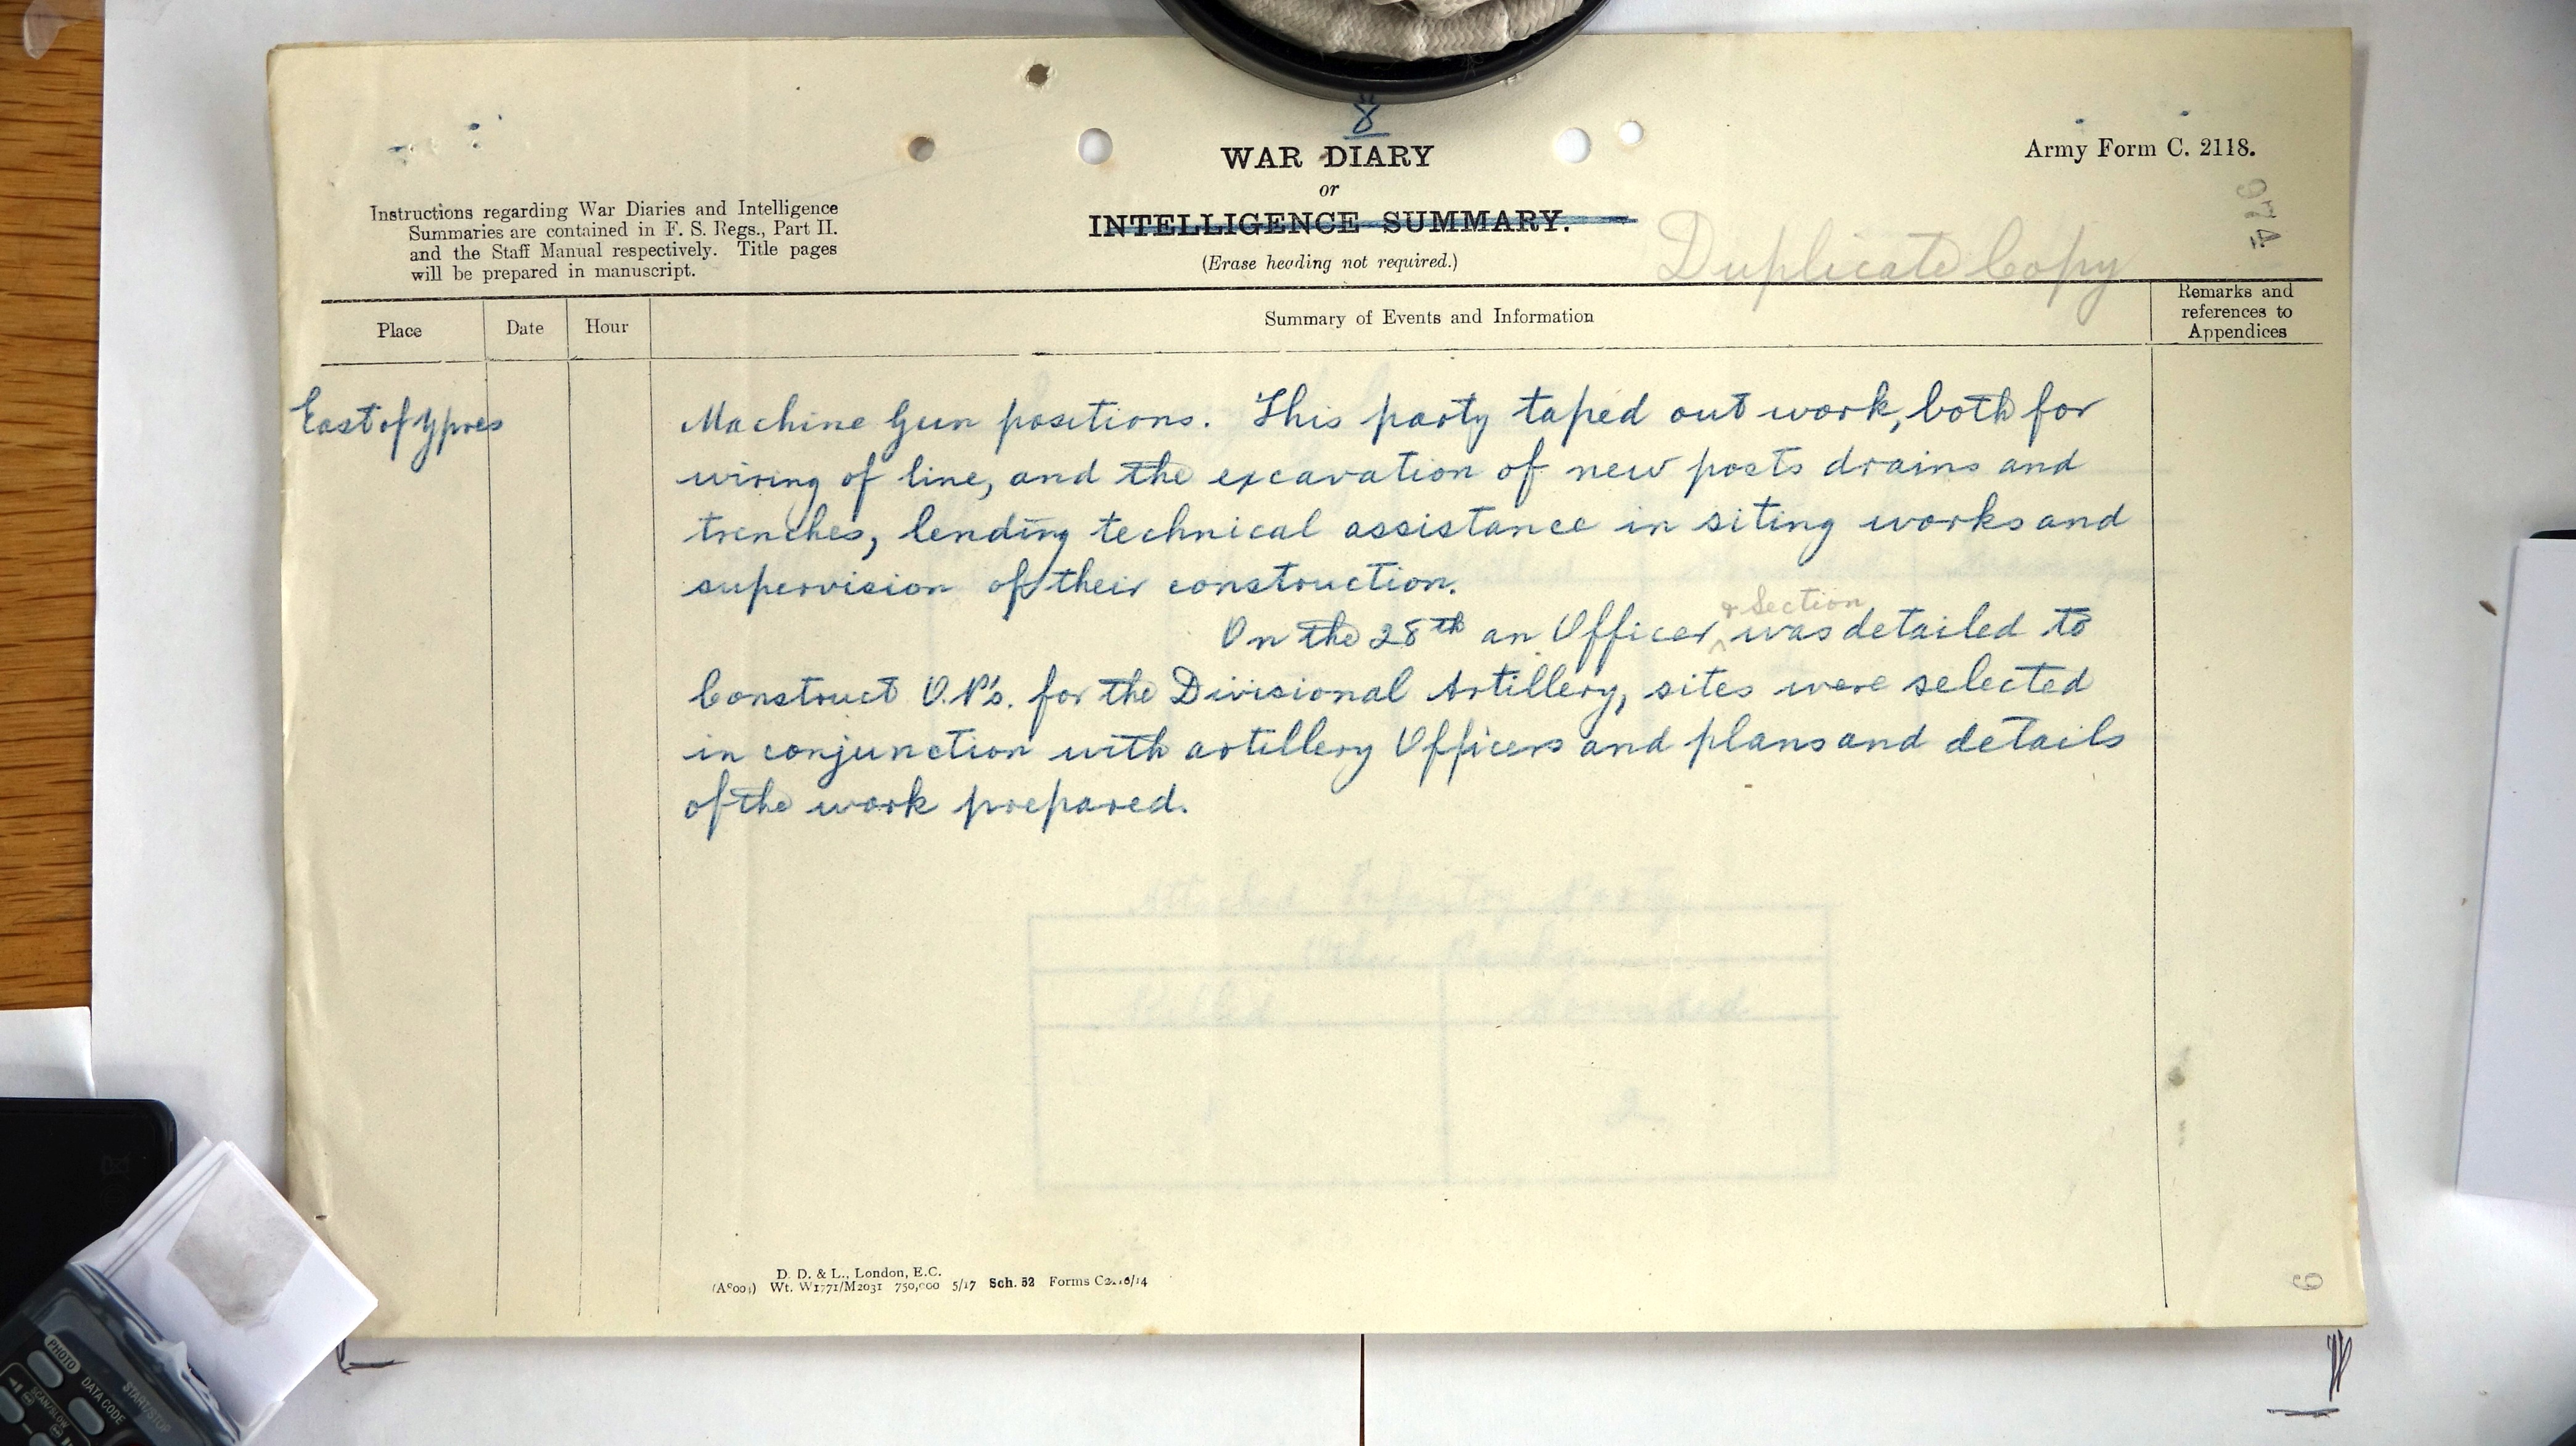 8
WAR DIARY
or
INTELLIGENCE SUMMARY.
(Erase heading not required.)
Army Form C. 2118.
Instructions regarding War Diaries and Intelligence
Summaries are contained in F. S. Regs., Part II.
and the Staff Manual respectively. Title pages
will be prepared in manuscript.
Duplicate Copy
Place
Date
Hour
Summary of Events and Information
Remarks and
references to
Appendices
East of Ypres
Machine Gun positions. This party taped out work, both for
wiring of line, and the excavation of new posts drains and
trenches, lending technical assistance in siting works and
supervision of their construction.
& Section
On the 28th an Officer was detailed to
Construct O.P's. for the Divisional Artillery, sites were selected
in conjunction with artillery Officers and plans and details
of the work prepared.
Attached Infantry Party
Other Ranks
Killed Wounded
2
D. D. & L., London, E.C.
Wt. W1771/M2031 750,000 5/17 Sch. 52 Forms
PHOTO
DATA CODE
START/STOP
SCAN/SLOW